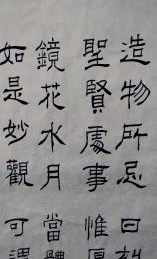 造物所忌曰
聖賢處事惟
鏡花水月當體
如是妙觀可謂